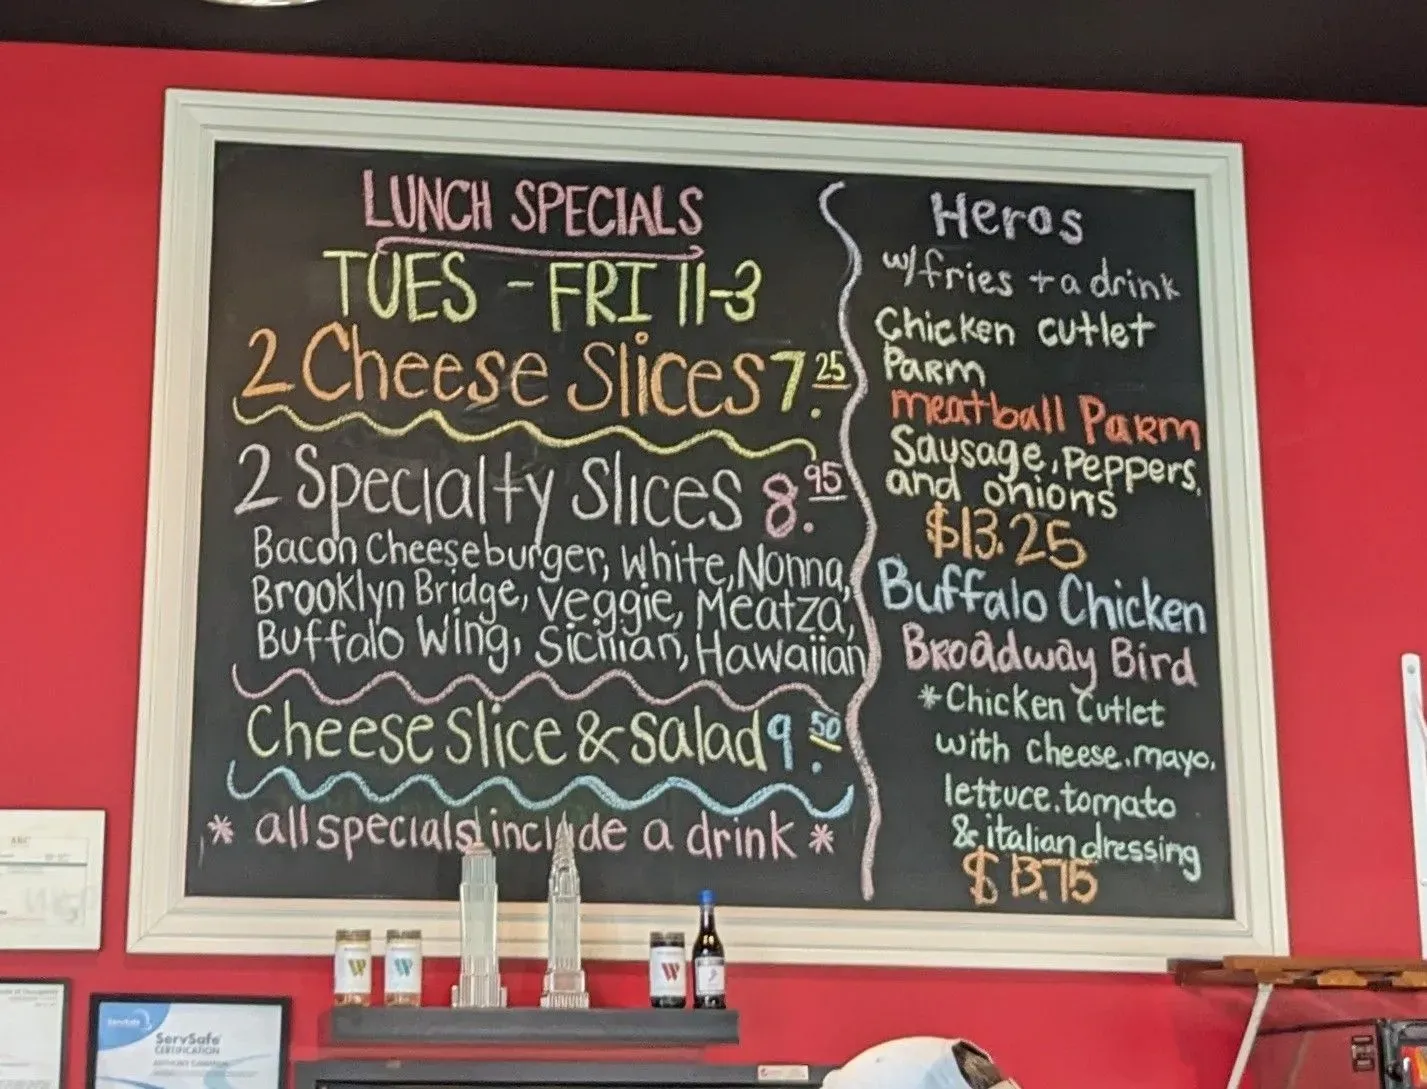 LUNCH SPECIALS
TUES - FRI 11-3
2 Cheese Slices 7.25
2 Specialty Slices 8.95
Bacon Cheeseburger, White, Nonna,
Brooklyn Bridge, Veggie, Meatza,
Buffalo Wing, Sicilian, Hawaiian
Cheese Slice & Salad 9.50
* all specials include a drink *
Heros
w/fries + a drink
Chicken cutlet
Parm
meatball Parm
Sausage, Peppers,
and onions
$13.25
Buffalo Chicken
Broadway Bird
* Chicken Cutlet
with cheese, mayo,
lettuce, tomato
& italian dressing
$13.75
W
W
W
ServSafe
ServSafe
CERTIFICATION